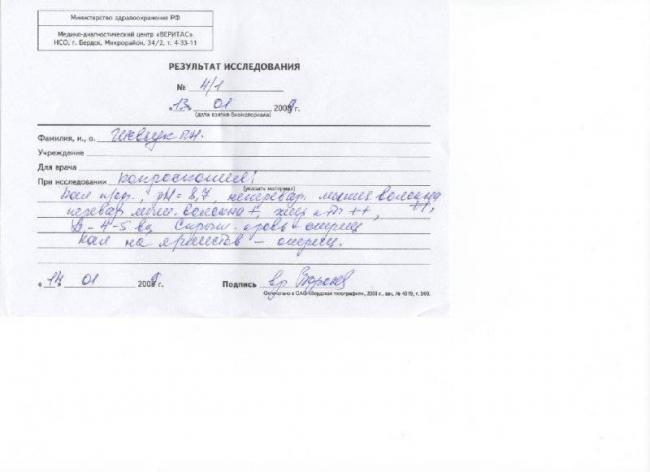 Министерство здравоохранения РФ
Медико-диагностический центр «ВЕРИТАС»
НСО, г. Бердск, Микрорайон, 34/2, т. 4-33-11
РЕЗУЛЬТАТ ИССЛЕДОВАНИЯ
№ 4/1
« 13 » 01 2009 г.
(дата взятия биоматериала)
Фамилия, и., о. Шевчук
Учреждение
Для врача
При исследовании копроскопия
(указать материал)
Кал , pH = 8,7, неперевар. мышеч волокна ++,
перевар. мышеч. волокна +, ++,
L - 4-5 вп Скрыт. кровь - отриц
Кал на я/глистов - отриц.
« 14 » 01 2009 г. Подпись вр
Отпечатано в ОАО «Бердская типография», 2008 г., зак. № 4019, т. 500.